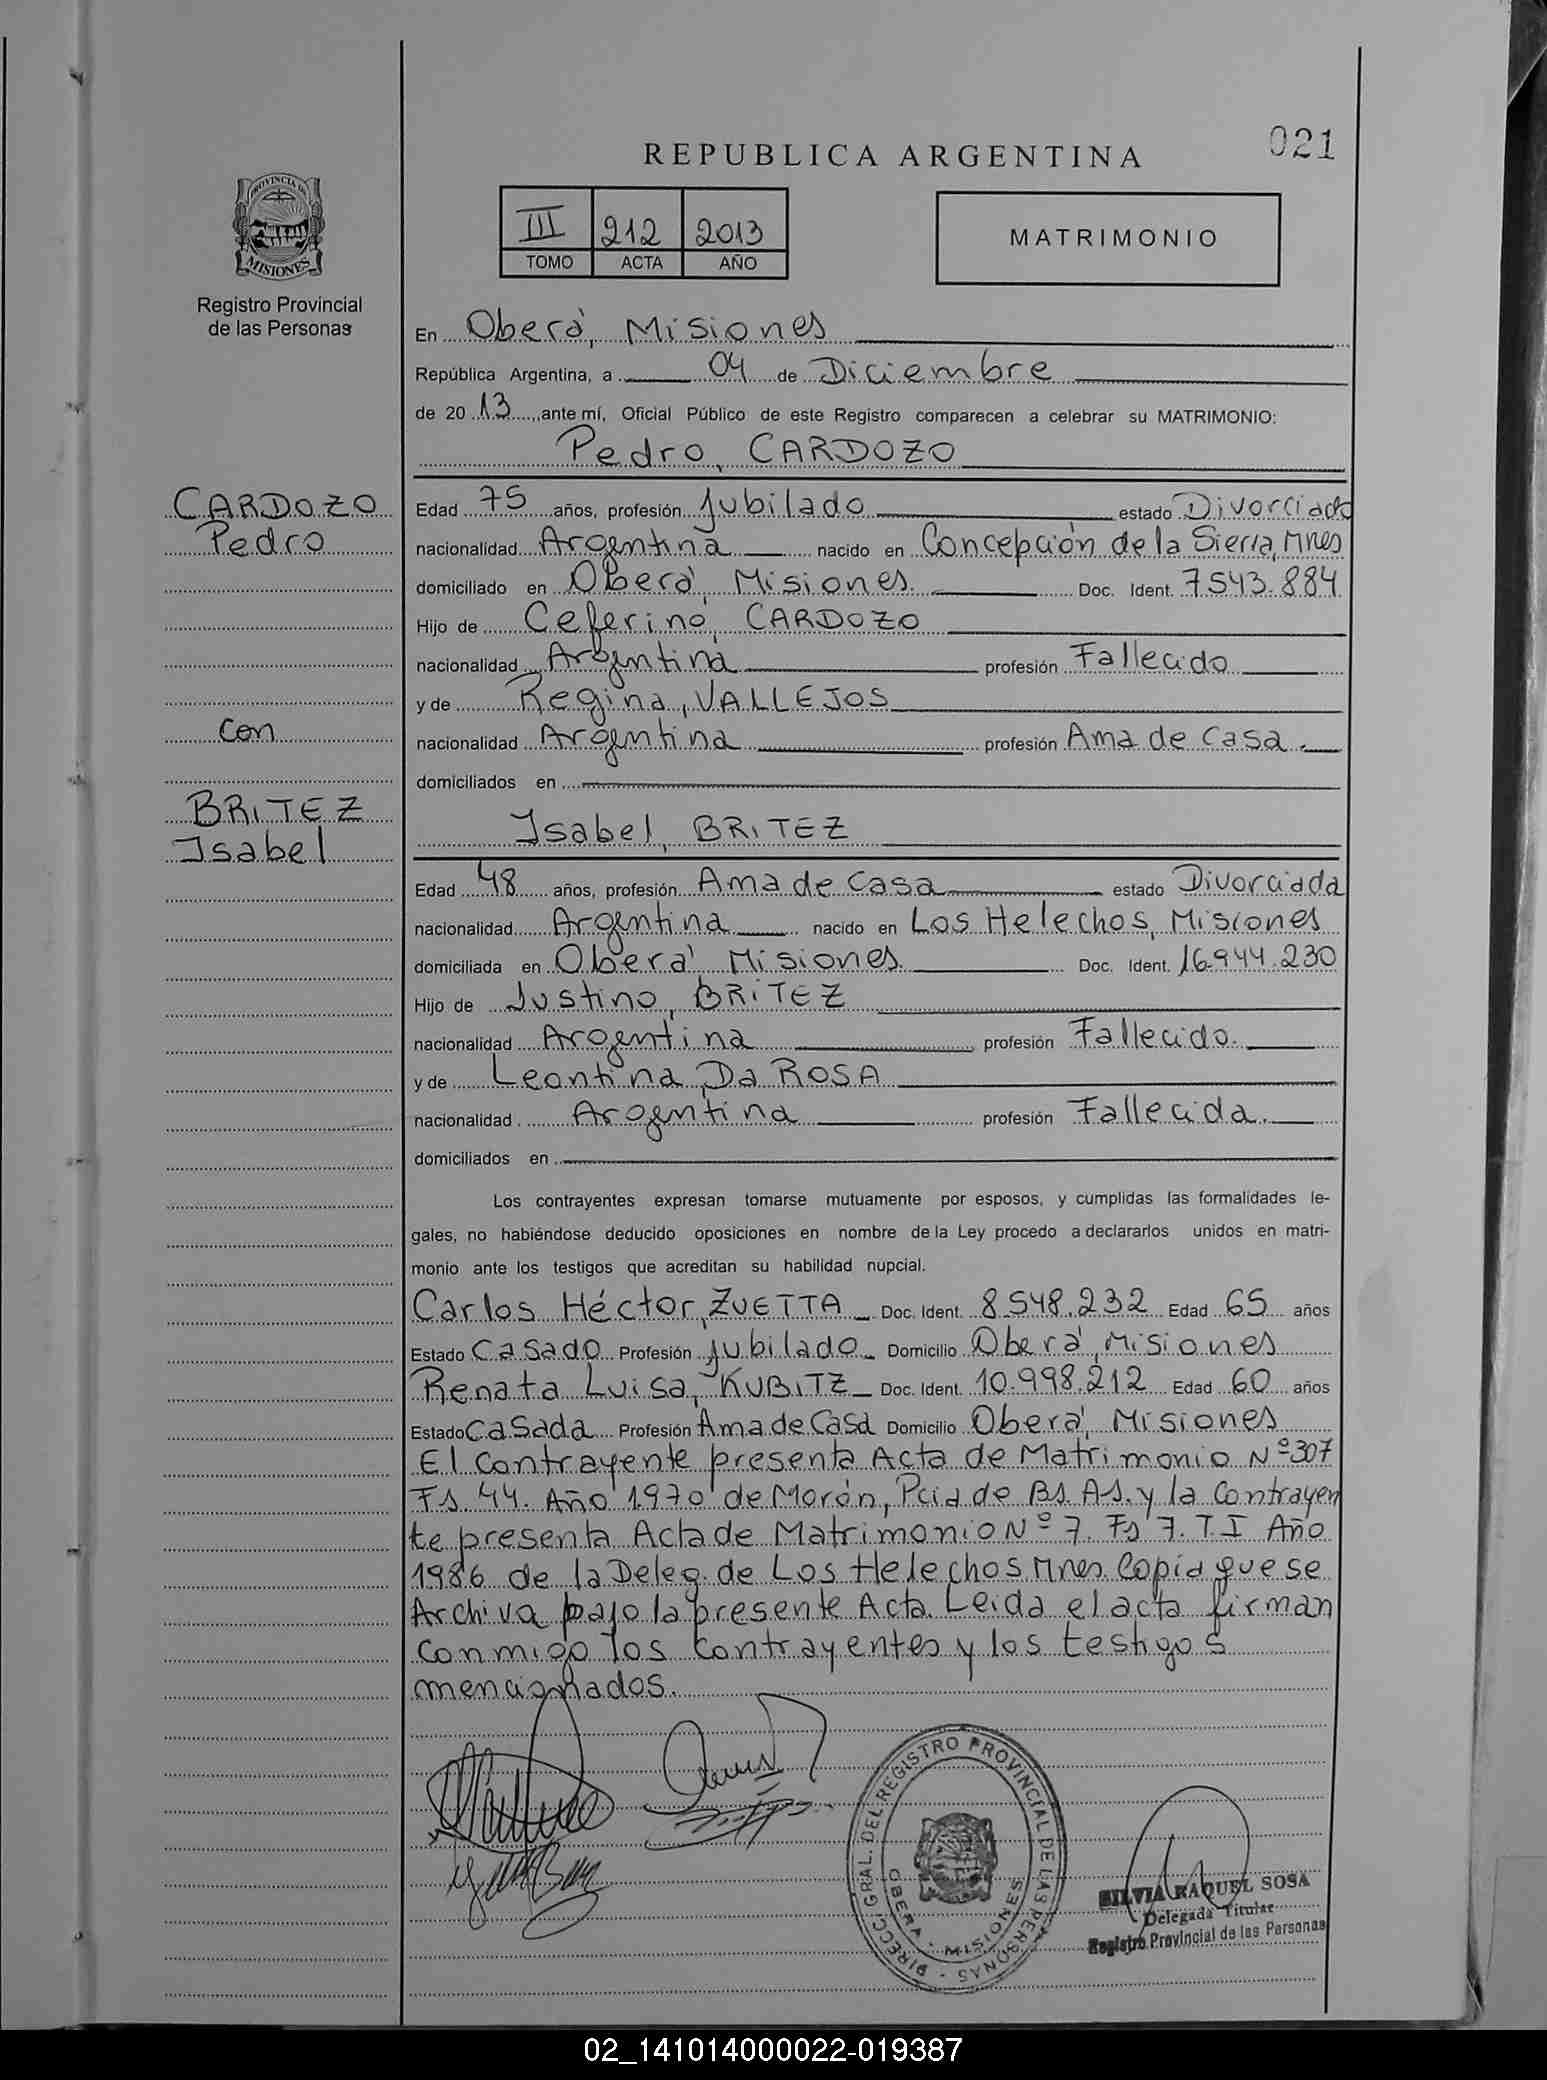 021
REPUBLICA ARGENTINA
PROVINCIA DE
MISIONES
Registro Provincial
de las Personas
III 212 2013
TOMO ACTA AÑO
MATRIMONIO
En Oberá, Misiones
República Argentina, a 04 de Diciembre
de 20 13, ante mí, Oficial Público de este Registro comparecen a celebrar su MATRIMONIO:
Pedro, CARDOZO
CARDOZO
Pedro
con
BRITEZ
Isabel
Edad 75 años, profesión Jubilado estado Divorciado
nacionalidad Argentina nacido en Concepción de la Sierra, Mnes
domiciliado en Oberá, Misiones. Doc. Ident. 7543.884
Hijo de Ceferino, CARDOZO
nacionalidad Argentina profesión Fallecido
y de Regina, VALLEJOS
nacionalidad Argentina profesión Ama de casa.
domiciliados en
Isabel, BRITEZ
Edad 48 años, profesión Ama de casa estado Divorciada
nacionalidad Argentina nacido en Los Helechos, Misiones
domiciliada en Oberá, Misiones. Doc. Ident. 16.944.230
Hijo de Justino, BRITEZ
nacionalidad Argentina profesión Fallecido.
y de Leontina, Da ROSA
nacionalidad Argentina profesión Fallecida.
domiciliados en
Los contrayentes expresan tomarse mutuamente por esposos, y cumplidas las formalidades le-
gales, no habiéndose deducido oposiciones en nombre de la Ley procedo a declararlos unidos en matri-
monio ante los testigos que acreditan su habilidad nupcial.
Carlos Héctor, ZUETTA Doc. Ident. 8.548.232 Edad 65 años
Estado Casado Profesión Jubilado Domicilio Oberá, Misiones
Renata Luisa, KUBITZ Doc. Ident. 10.998.212 Edad 60 años
Estado Casada Profesión Ama de Casa Domicilio Oberá, Misiones
El Contrayente presenta Acta de Matrimonio Nº 307
Fs. 44. Año 1.970 de Morón, Pcia de Bs. As. y la Contrayen
te presenta Acta de Matrimonio Nº 7. Fs 7. T. I Año
1986 de la Deleg. de Los Helechos Mnes Copia que se
Archiva bajo la presente Acta. Leida el acta firman
conmigo los contrayentes y los testigos
mencionados.
DIRECC. GRAL. DEL REGISTRO PROVINCIAL DE LAS PERSONAS
OBERA - MISIONES
SILVIA RAQUEL SOSA
Delegada Titular
Registro Provincial de las Personas
02_141014000022-019387